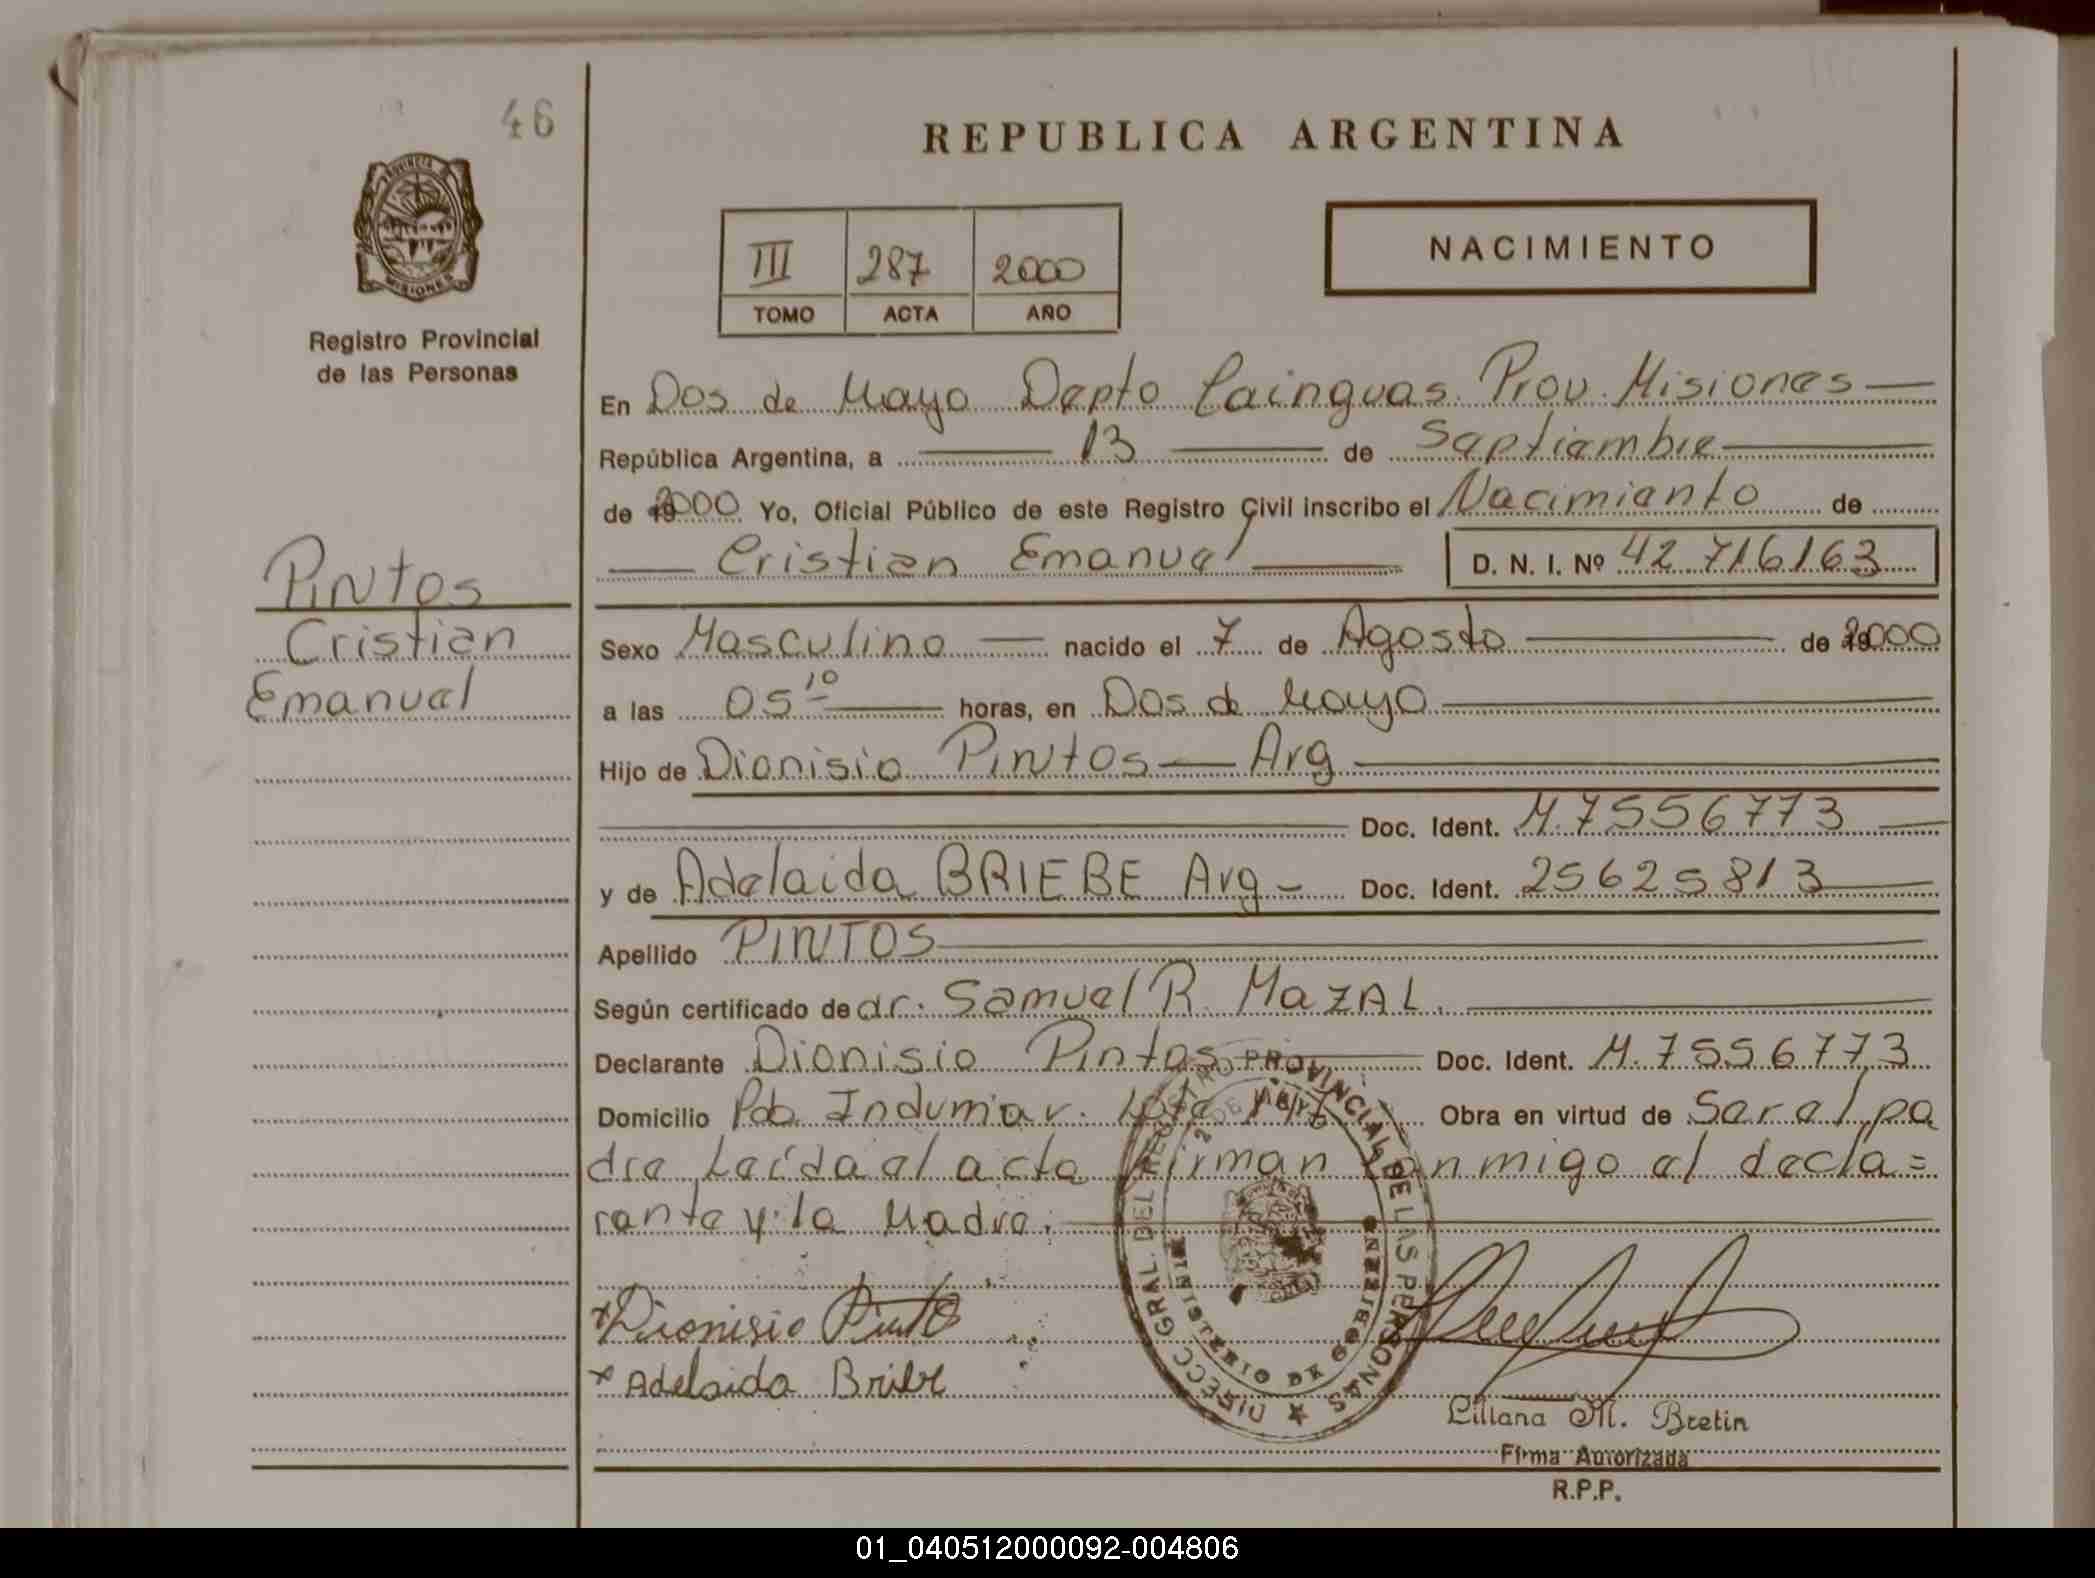 46
REPUBLICA ARGENTINA
PROVINCIA
MISIONES
Registro Provincial
de las Personas
III 287 2000
TOMO ACTA AÑO
NACIMIENTO
En Dos de Mayo Depto Cainguas Prov. Misiones
República Argentina, a 13 de Septiembre
de 2000 Yo, Oficial Público de este Registro Civil inscribo el Nacimiento de
Cristian Emanuel D. N. I. Nº 42.716.163
Pintos
Cristian
Emanuel
Sexo Masculino nacido el 7 de Agosto de 2000
a las 05 10 horas, en Dos de Mayo
Hijo de Dionisio Pintos Arg
Doc. Ident. M.7556773
y de Adelaida BRIEBE Arg Doc. Ident. 25625813
Apellido PINTOS
Según certificado de dr. Samuel R. MAZAL.
Declarante Dionisio Pintos Doc. Ident. M.7556773
Domicilio Pob. Indumar. Lote Obra en virtud de Ser el pa
dre Leída el acta Firman conmigo el decla=
rante y la Madre.
DIRECC GRAL. DEL REGISTRO PROVINCIAL DE LAS PERSONAS
MINISTERIO DE GOBIERNO
Dionisio Pintos
Adelaida Briebe
Liliana M. Bretin
Firma Autorizada
R.P.P.
01_040512000092-004806